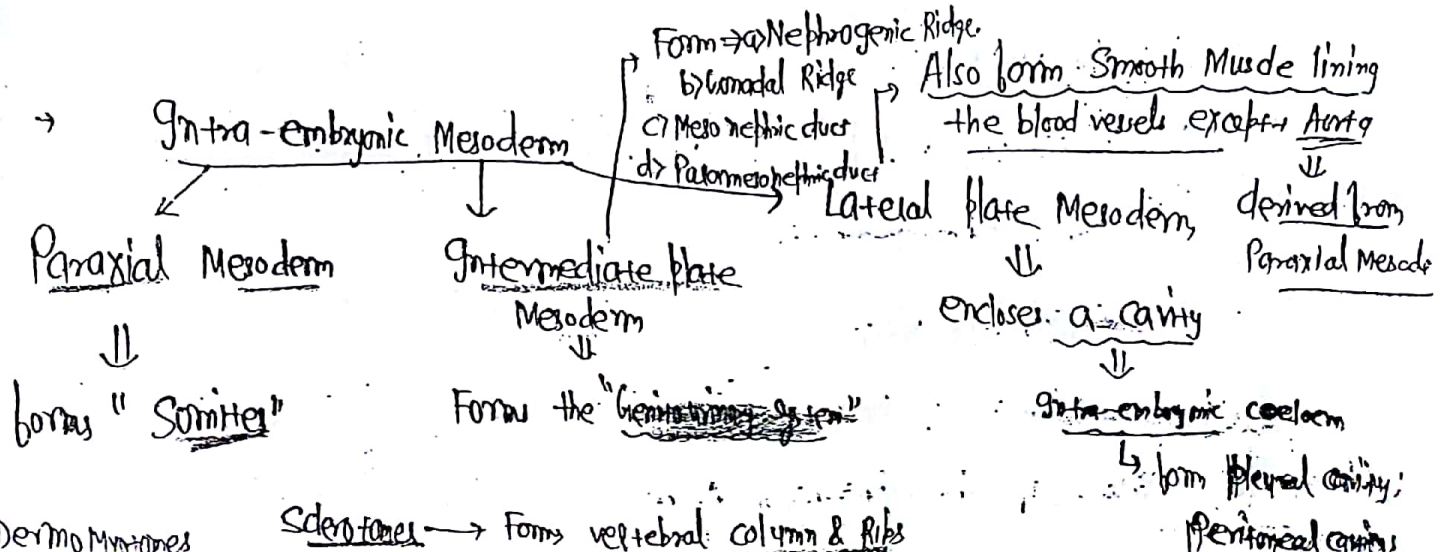 Form ⇒ a) Nephrogenic Ridge.
b) Gonadal Ridge
c) Mesonephric duct
d) Paramesonephric duct
Also form Smooth Muscle lining
the blood vessels except → Aorta
⇓
derived from
Paraxial Mesode
→ Intra-embryonic Mesoderm
Paraxial Mesoderm
⇓
forms "Somites"
Intermediate plate
Mesoderm
⇓
Forms the "Genitourinary System"
Lateral plate Mesoderm
⇓
encloses a cavity
⇓
Intra-embryonic coeloem
↳ form pleural cavity;
Peritoneal cavity
Dermomyotomes
Sclerotomes → Forms vertebral column & Ribs